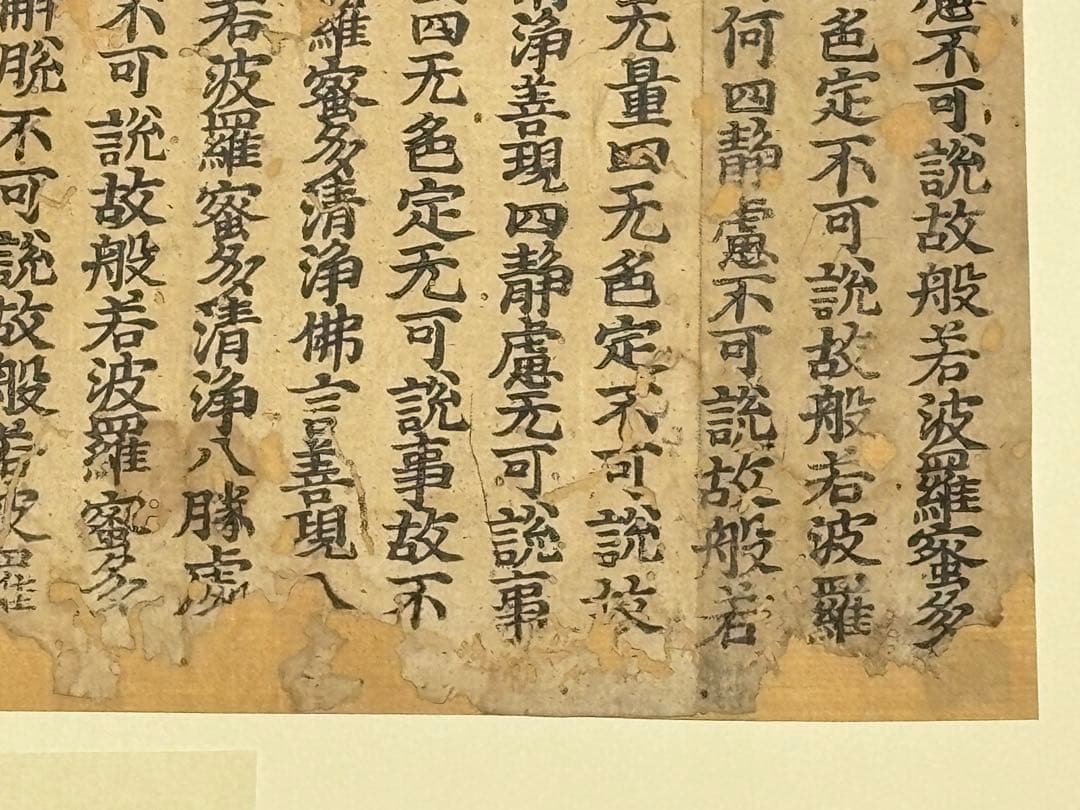 慮不可說故般若波羅蜜多
色定不可說故般若波羅
何四靜慮不可說故般若
量四无色定不可說故
淨善現四靜慮无可說事
四无色定无可說事故不
羅蜜多清淨佛言善現八
若波羅蜜多清淨八勝處
不可說故般若波羅蜜多
解脫不可說故般若波羅